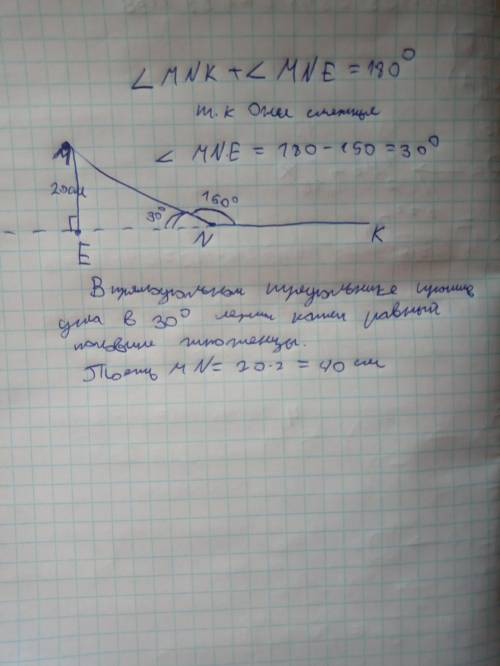 ∠ MNK + ∠ MNE = 180°
т.к Они смежные
∠ MNE = 180 - 150 = 30°
M
20см
30°
150°
E
N
K
В прямоугольном треугольнике против
угла в 30° лежит катет равный
половине гипотенузы.
То есть MN = 20 · 2 = 40 см